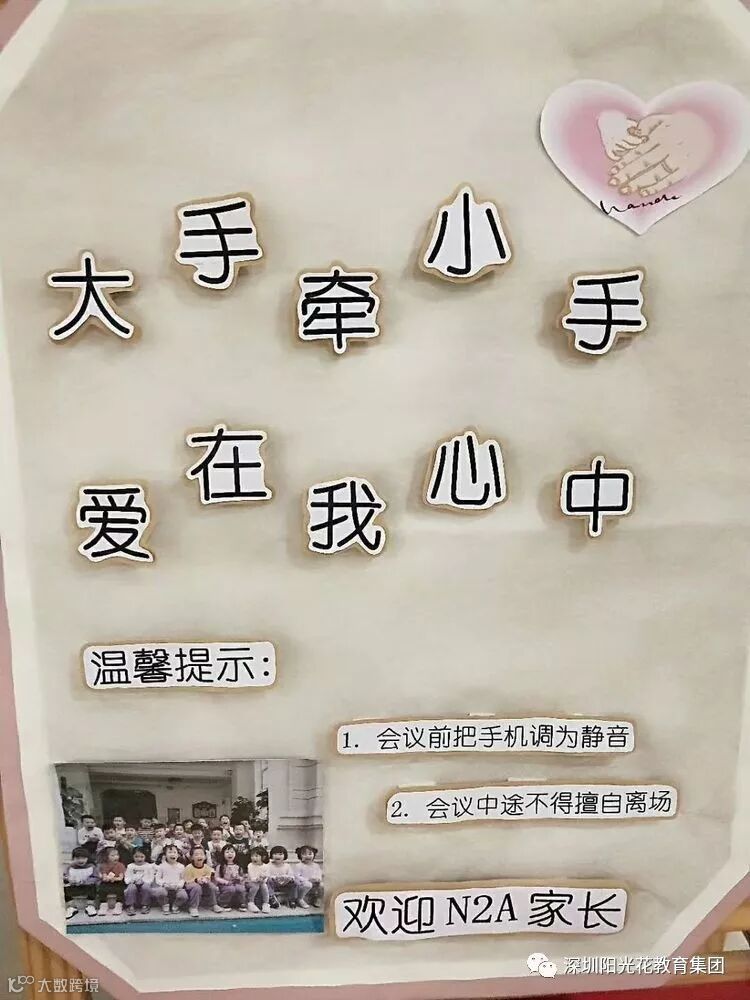 大手牵小手
爱在我心中
温馨提示:
1. 会议前把手机调为静音
2. 会议中途不得擅自离场
欢迎 N2A 家长
深圳阳光花教育集团
大数跨境